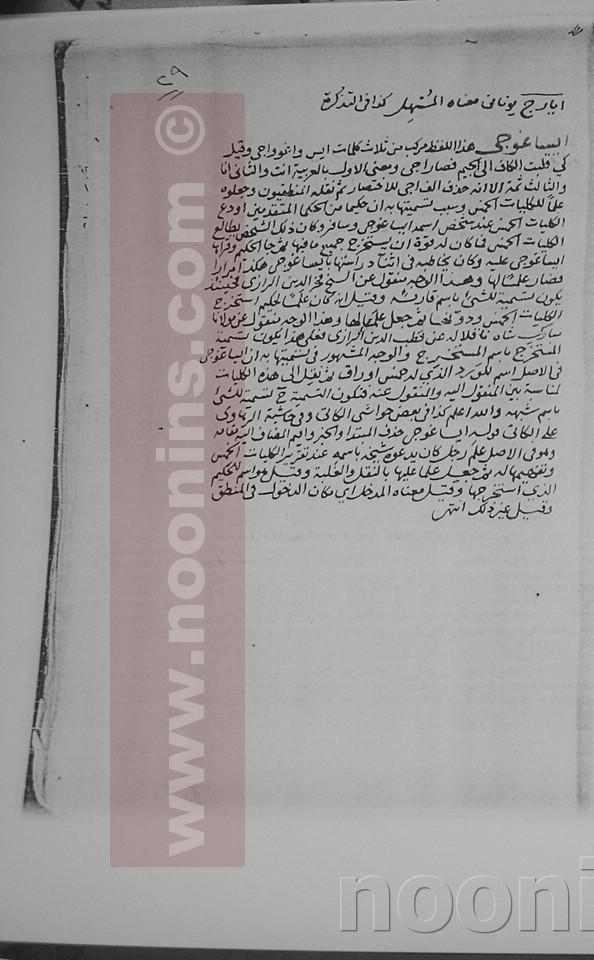 ٢٩
ايارج يوناني معناه المسهل كذا في التذكرة
ايساغوجي هذا اللفظ مركب من ثلاث كلمات ايس واغو واجي وقيل
كي قلبت الكاف الى الجيم فصار اجي ومعنى الاول بالعربية انت والثاني انا
والثالث ثمة الا انه حذف الف اجي للاختصار ثم نقله المنطقيون وجعلوه
علما للكليات الخمس وسبب تسميتها به ان حكيما من الحكما المتقدمين اودع
الكليات الخمس عند شخص اسمه ايساغوجي وسافر وكان ذلك الشخص يطالع
الكليات الخمس فما كان له قوة ان يستخرج جميع ما فيها ثم جا الحكيم وقراها
ايساغوجي عليه وكان يخاطبه في اثناء دراستها بايساغوجي هكذا مرارا
فصار علما لها وهذا الوجه منقول عن الشيخ فخر الدين الرازي فحينئذ
يكون تسمية للشئ باسم قارئه وقيل انه كان علما لحكيم استخرج
الكليات الخمس ودونها ثم جعل علما لها وهذا الوجه منقول عن مولانا
مبارك شاه ناقلا له عن قطب الدين الرازي فعلى هذا يكون تسمية
المستخرج باسم المستخرج والوجه المشهور في تسميتها به ان ايساغوجي
في الاصل اسم للورد الذي له خمس اوراق ثم نقل الى هذه الكليات
لمناسبة بين المنقول اليه والمنقول عنه فتكون التسمية ح تسمية للشئ
باسم شبهه والله اعلم كذا في بعض حواشي الكاتي وفي حاشية
على الكاتي قوله ايساغوجي حذف المبتدا والخبر واقيم المضاف اليه مقامه
وهو في الاصل علم رجل كان يدعوه شيخه باسمه عند تقرير الكليات الخمس
وتفهيمها له ثم جعل علما عليها بالنقل والغلبة وقيل هو اسم للحكيم
الذي استخرجها وقيل معناه المدخل اي مكان الدخول في المنطق
وقيل غير ذلك انتهى
www.noonins.com ©
nooni